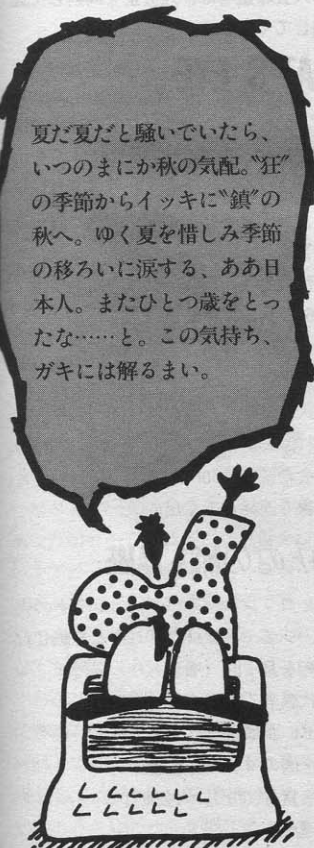 夏だ夏だと騒いでいたら、
いつのまにか秋の気配。〝狂〟
の季節からイッキに〝鎮〟の
秋へ。ゆく夏を惜しみ季節
の移ろいに涙する、ああ日
本人。またひとつ歳をとっ
たな……と。この気持ち、
ガキには解るまい。